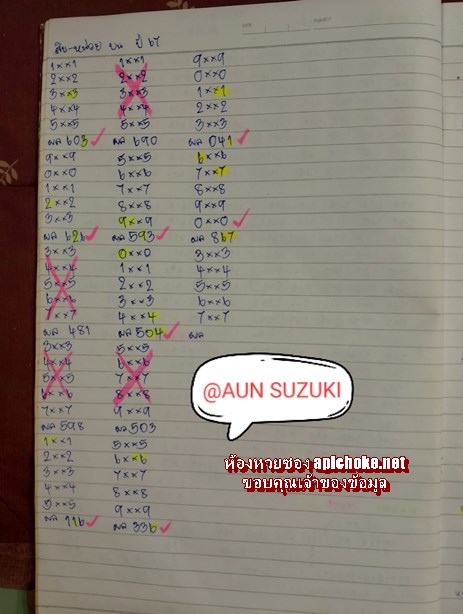 สิบ-หน่วย บน ปี 67
1××1
2××2
3××3
4××4
5××5
ผล 603
9××9
0××0
1××1
2××2
3××3
ผล 626
3××3
4××4
5××5
6××6
7××7
ผล 481
3××3
4××4
5××5
6××6
7××7
ผล 598
1××1
2××2
3××3
4××4
5××5
ผล 116
1××1
2××2
3××3
4××4
5××5
ผล 690
5××5
6××6
7××7
8××8
9××9
ผล 593
0××0
1××1
2××2
3××3
4××4
ผล 504
5××5
6××6
7××7
8××8
9××9
ผล 503
5××5
6××6
7××7
8××8
9××9
ผล 336
9××9
0××0
1××1
2××2
3××3
ผล 041
6××6
7××7
8××8
9××9
0××0
ผล 867
3××3
4××4
5××5
6××6
7××7
ผล
@AUN SUZUKI
ห้องหวยซอง apichoke.net
ขอบคุณเจ้าของข้อมูล